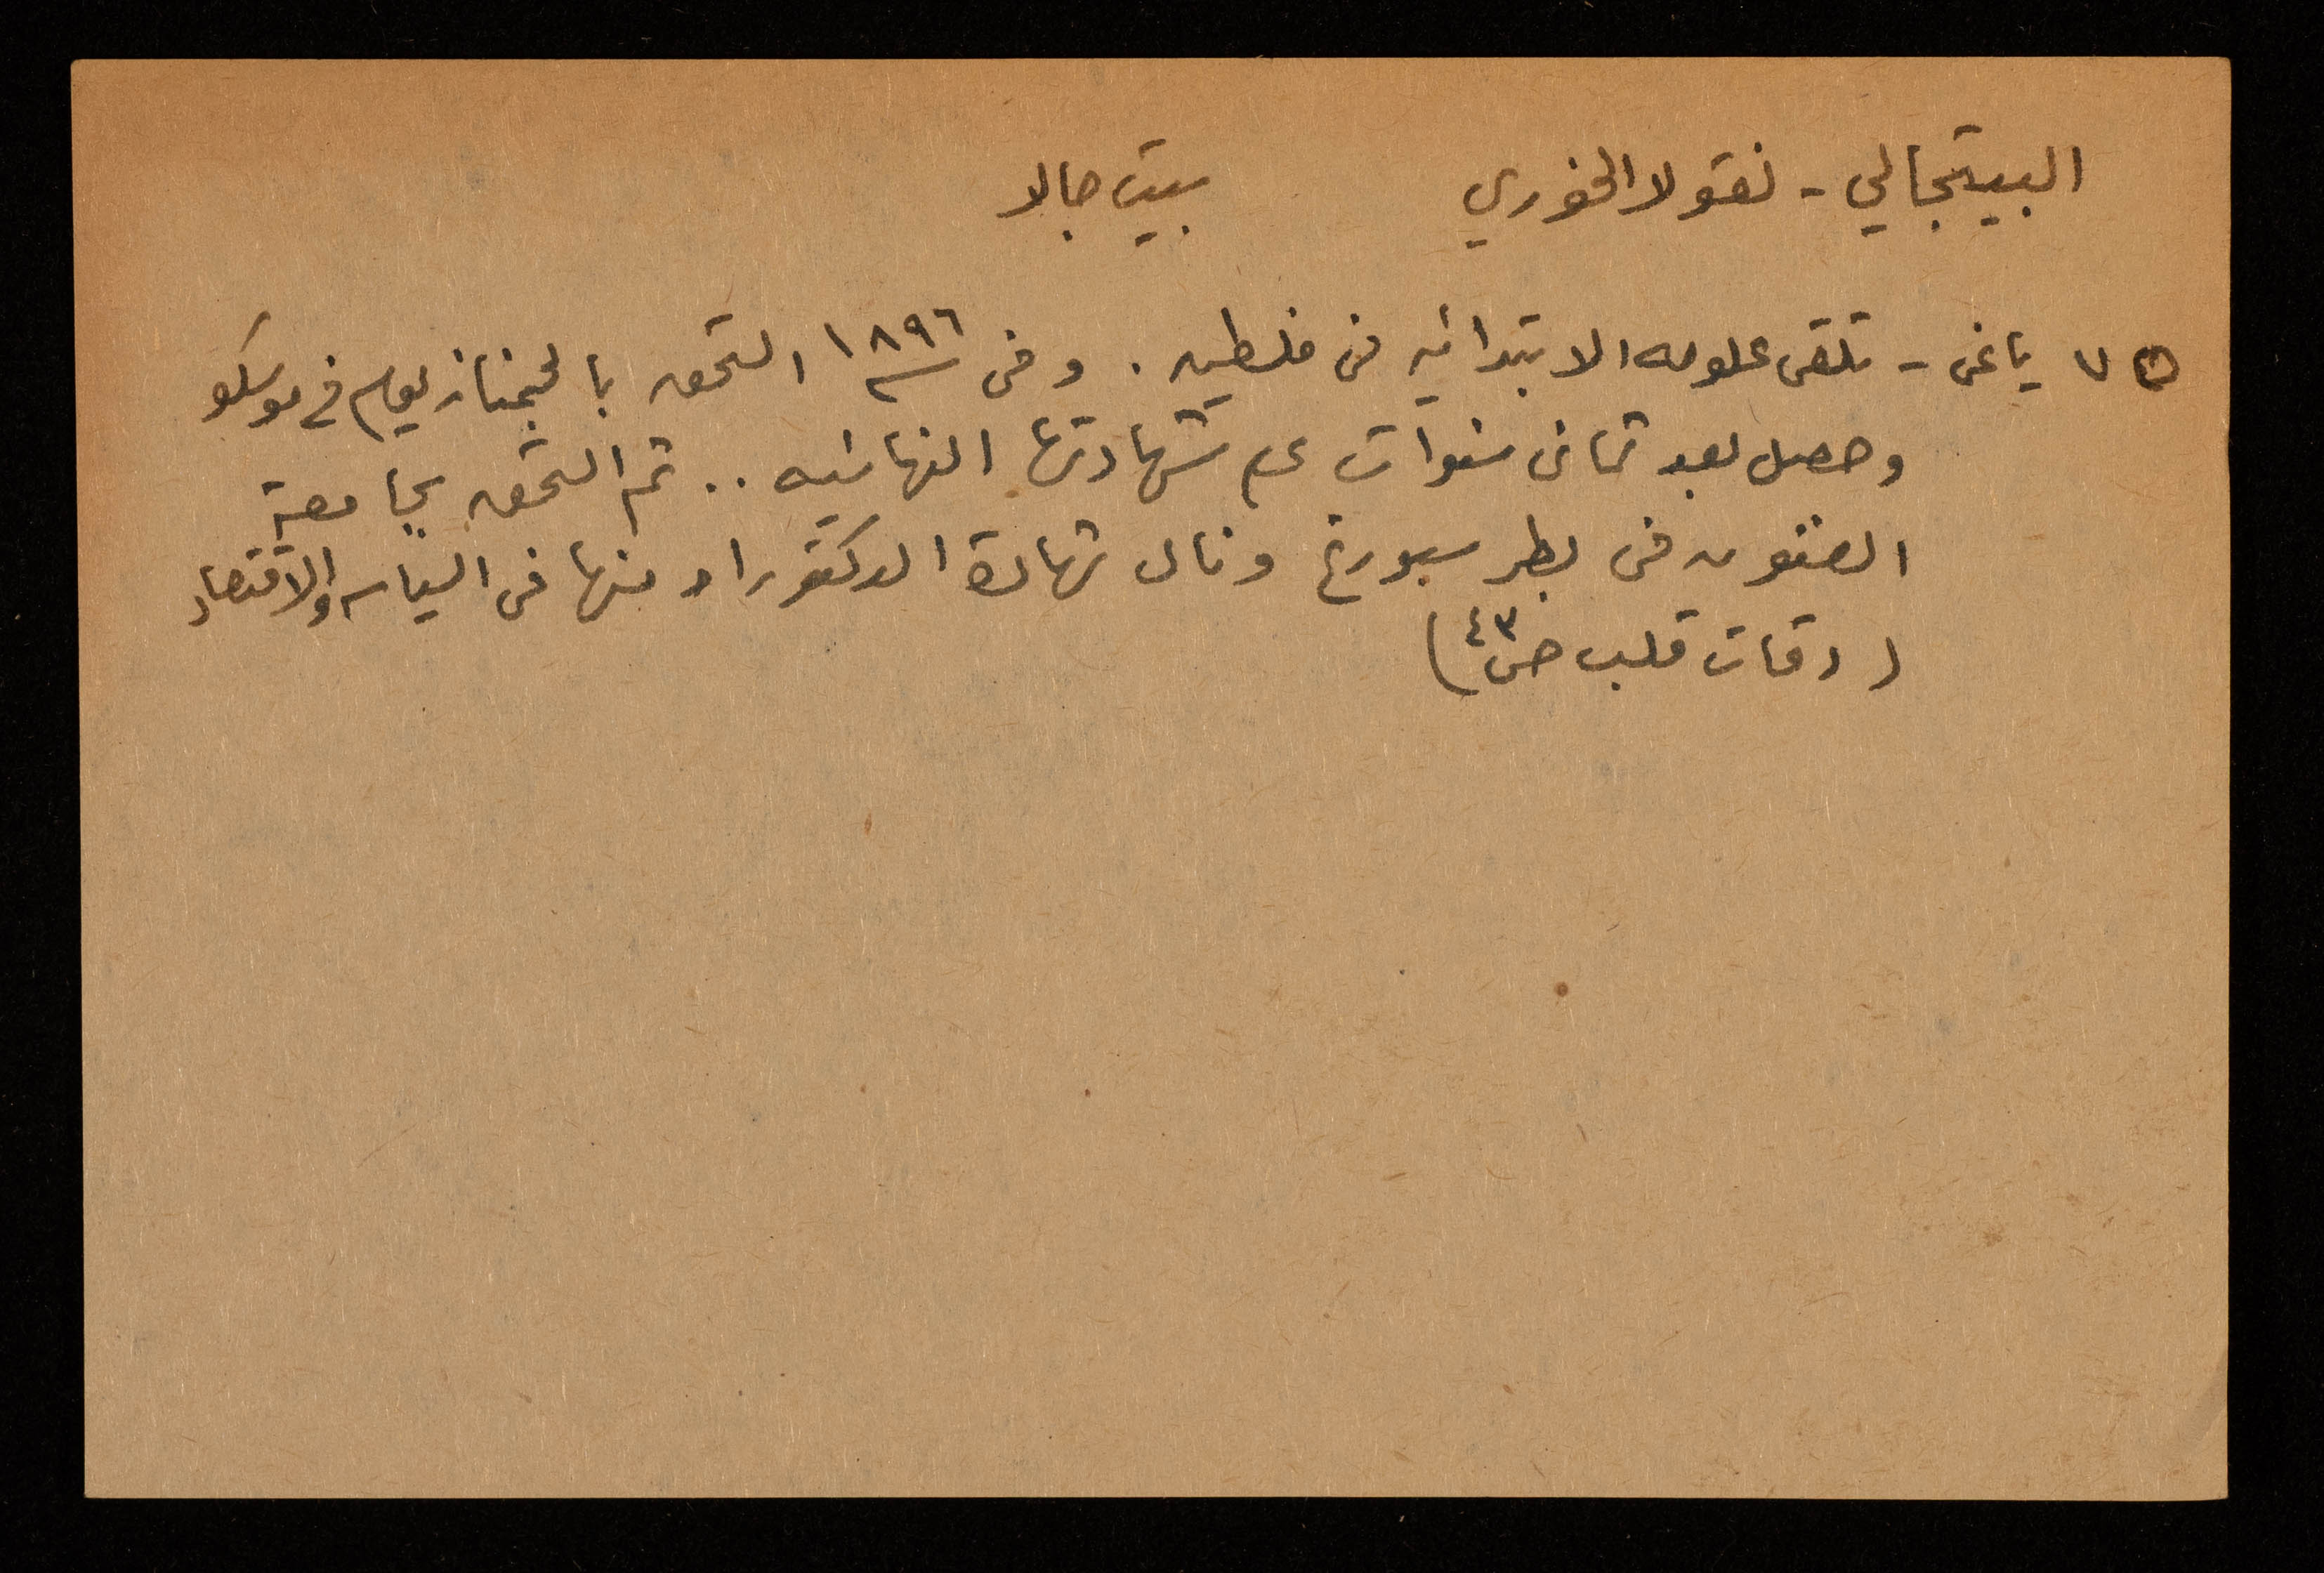 البيتجالي - نقولا الخوري بيت جالا
٧٥ ياغي - تلقى علومه الابتدائيه في فلسطين . وفي سنة ١٨٩٦ التحق بالجمنازيوم في موسكو
وحصل بعد ثماني سنوات على شهادتها النهائيه .. ثم التحق بجامعة
الفنون في بطرسبورغ ونال شهادة الدكتوراه منها في السياسه والاقتصاد
( دقات قلب ص ٤٣ )